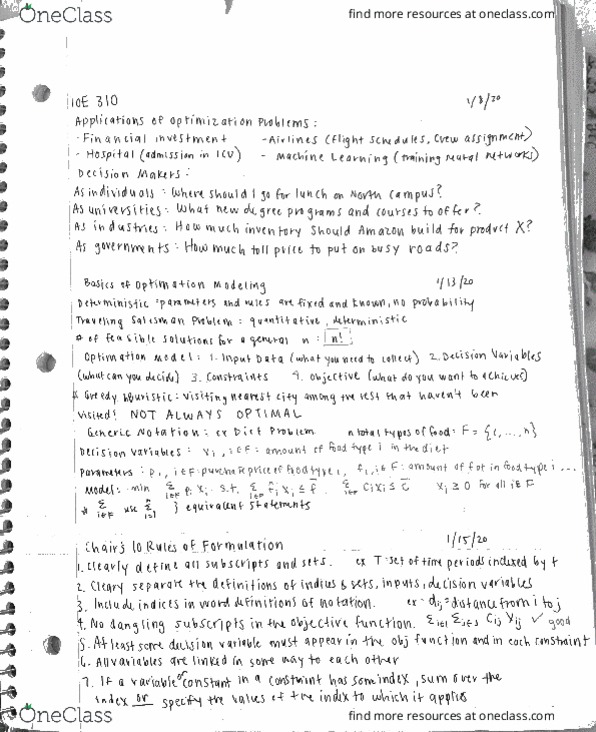 OneClass
find more resources at oneclass.com
IOE 310 1/8/20
Applications of Optimization Problems:
- Financial investment - Airlines (flight schedules, crew assignment)
- Hospital (admission in ICU) - Machine Learning (training neural networks)
Decision Makers:
As individuals: Where should I go for lunch on North Campus?
As universities: What new degree programs and courses to offer?
As industries: How much inventory should Amazon build for product X?
As governments: How much toll price to put on busy roads?
Basics of Optimation Modeling 1/13/20
Deterministic: parameters and rules are fixed and known, no probability
Traveling Salesman Problem: quantitative, deterministic
# of feasible solutions for a general n: n!
Optimation Model: 1. Input Data (what you need to collect) 2. Decision Variables
(what can you decide) 3. Constraints 4. Objective (what do you want to achieve)
* Greedy Heuristic: visiting nearest city among the rest that haven't been
visited! NOT ALWAYS OPTIMAL
Generic Notation: ex Diet Problem n total types of food: F = {1,...,n}
Decision Variables: xi, i∈F: amount of food type i in the diet
Parameters: pi, i∈F: purchase price of food type i, fi, i∈F: amount of fat in food type i ...
Model: min Σi∈F pi xi s.t. Σi∈F fi xi ≤ f̄ Σi∈F ci xi ≤ c̄ xi ≥ 0 for all i∈F
* Σi∈F use Σi=1 n } equivalent statements
Chair's 10 Rules of Formulation 1/15/20
1. Clearly define all subscripts and sets. ex T = set of time periods indexed by t
2. Cleary separate the definitions of indices & sets, inputs, decision variables
3. Include indices in word definitions of notation. ex - dij = distance from i to j
4. No dangling subscripts in the objective function. Σi∈I Σj∈J Cij Xij ✓ good
5. At least some decision variable must appear in the obj function and in each constraint
6. All variables are linked in some way to each other
7. If a variable or constant in a constraint has some index, sum over the
index or specify the values of the index to which it applies
OneClass
find more resources at oneclass.com